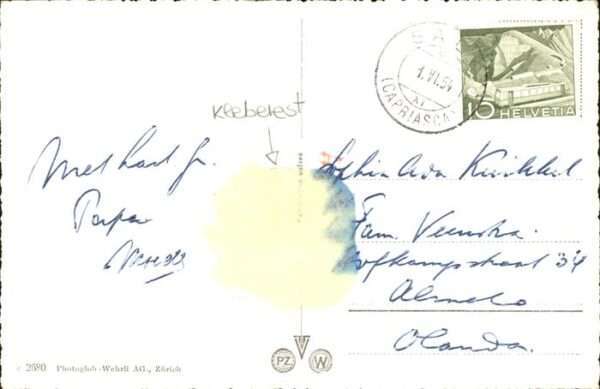 1.VI.54
XI
(CAPRIASCA)
10 HELVETIA
Kleberest
Met hart. gr.
Papa
Fam. Veenstra
Hofkampstraat 34
Almelo
Olanda
2690 Photoglob-Wehrli AG., Zürich
PZ W